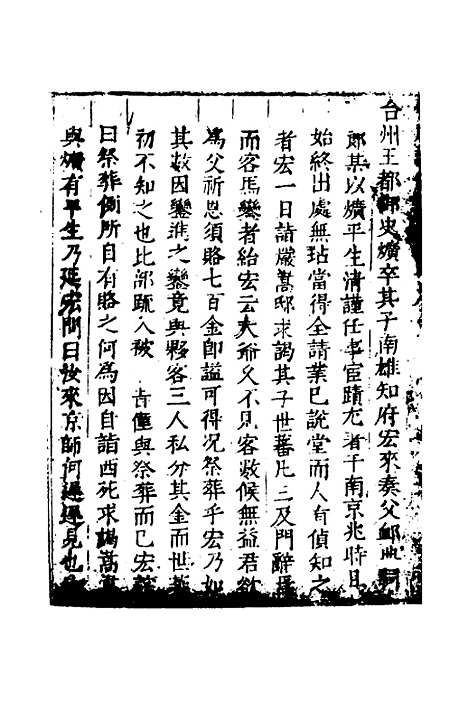 台州王都御史爌卒其子南雄知府宏來奏父卹典嗣
郎某以爌平生清謹任事宦蹟尤著于南京兆時且
始終出處無玷當得全請業已說堂而人有偵知之
者宏一日詣嚴嵩邸求謁其子世蕃凡三及門辭
而客馬鑾者紿宏云大爺久不見客敎候無益君欲
為父祈恩須賂七百金即謚可得况祭葬乎宏乃如
其数因鑾進之鑾竟與夥客三人私分其金而世蕃
初不知之也比部䟽入被 㫖僅與祭葬而已宏
曰祭葬例所自有賂之何為因自詣西苑求謁嵩嵩
與爌有平生乃延宏問曰汝來京師何遲遲見也